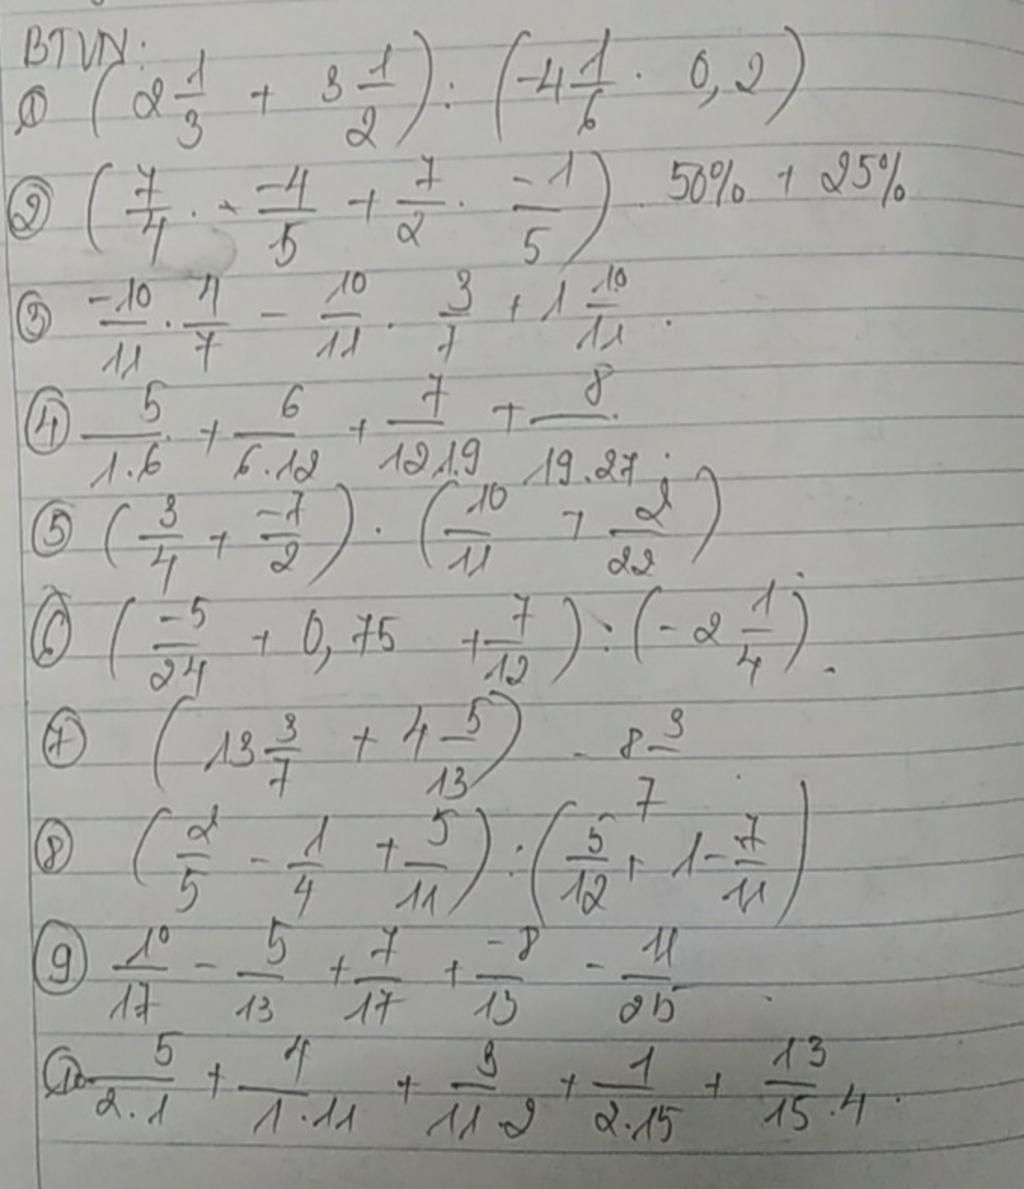 BTVN:
① (2 1/3 + 3 1/2) : (-4 1/6 . 0,2)
② (7/4 . -4/5 + 7/2 . -1/5) . 50% + 25%
③ -10/11 . 4/7 - 10/11 . 3/7 + 1 10/11 .
④ 5/1.6 + 6/6.12 + 7/12.19 + 8/19.27 .
⑤ (3/4 + -7/2) . (10/11 + 2/22)
⑥ (-5/24 + 0,75 + 7/12) : (-2 1/4) .
⑦ (13 3/7 + 4 5/13) - 8 3/7
⑧ (2/5 - 1/4 + 5/11) : (5/12 + 1 - 7/11)
⑨ 10/17 - 5/13 + 7/17 + -8/13 - 11/25 .
⑩ 5/2.1 + 4/1.11 + 3/11.2 + 1/2.15 + 13/15.4 .